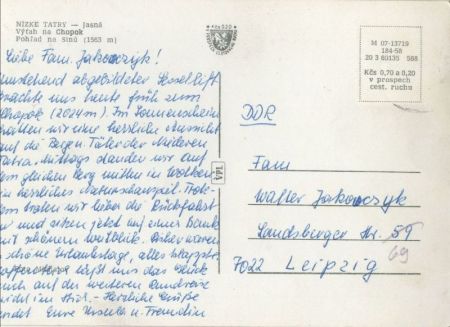 NÍZKE TATRY — Jasná
Výťah na Chopok
Pohľad na Sinú (1563 m)
Liebe Fam. Jakowczyk!
umstehend abgebildeter Sessellift
brachte uns heute früh zum
Chopok (2024m). Im Sonnenschein
hatten wir eine herrliche Aussicht
auf die Berge, Täler der Niederen
Tatra. Mittags standen wir auf
dem gleichen Berg mitten in Wolken
ein herrliches Naturschauspiel. Trotz-
dem traten wir lieber die Rückfahrt
an und sitzen jetzt auf einer Bank
mit schönem Weitblick. Bisher waren
schöne Urlaubstage, alles klappte.
läßt uns das Glück
auch auf der weiteren Rundreise
nicht im Stich. - Herzliche Grüße
sendet Eure Ursula u. Freundin
VPL
M 07-13719
184-58
20 3 80135 588
Kčs 0,70 a 0,20
v prospech
cest. ruchu
DDR
Fam
Walter Jakowczyk
Landsberger Str. 59
69
7022 Leipzig